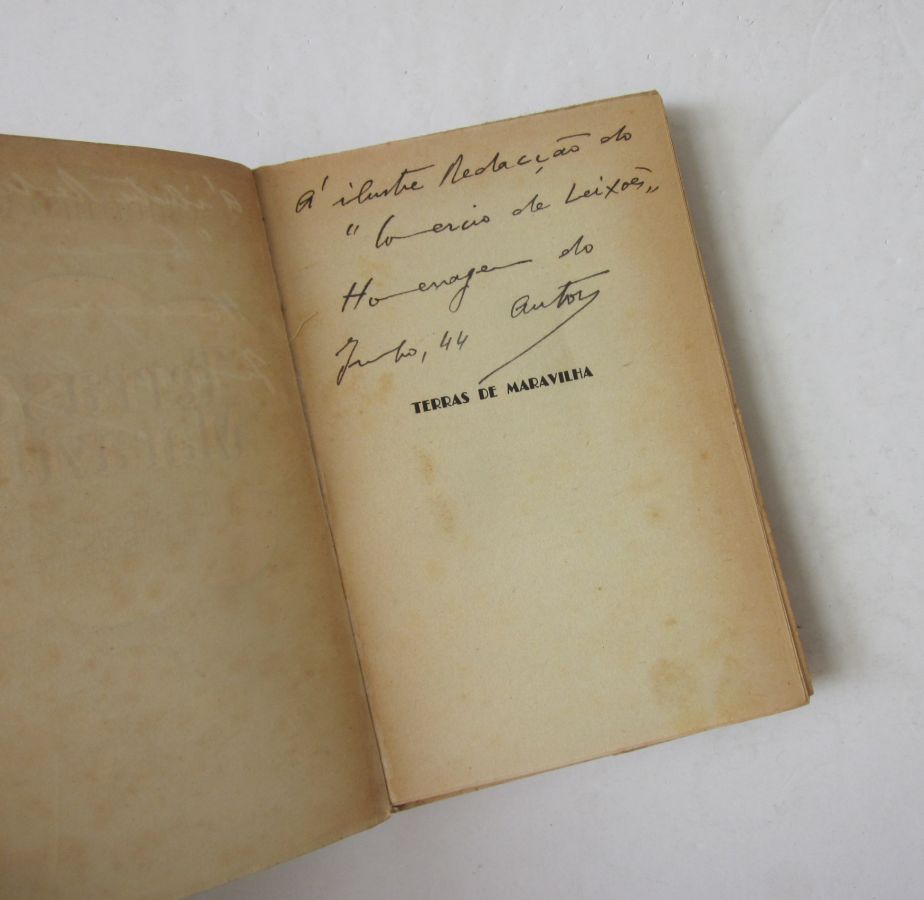 Á ilustre Redacção do
"Comercio de Leixões"
Homenagem do
Junho, 44 autor
TERRAS DE MARAVILHA